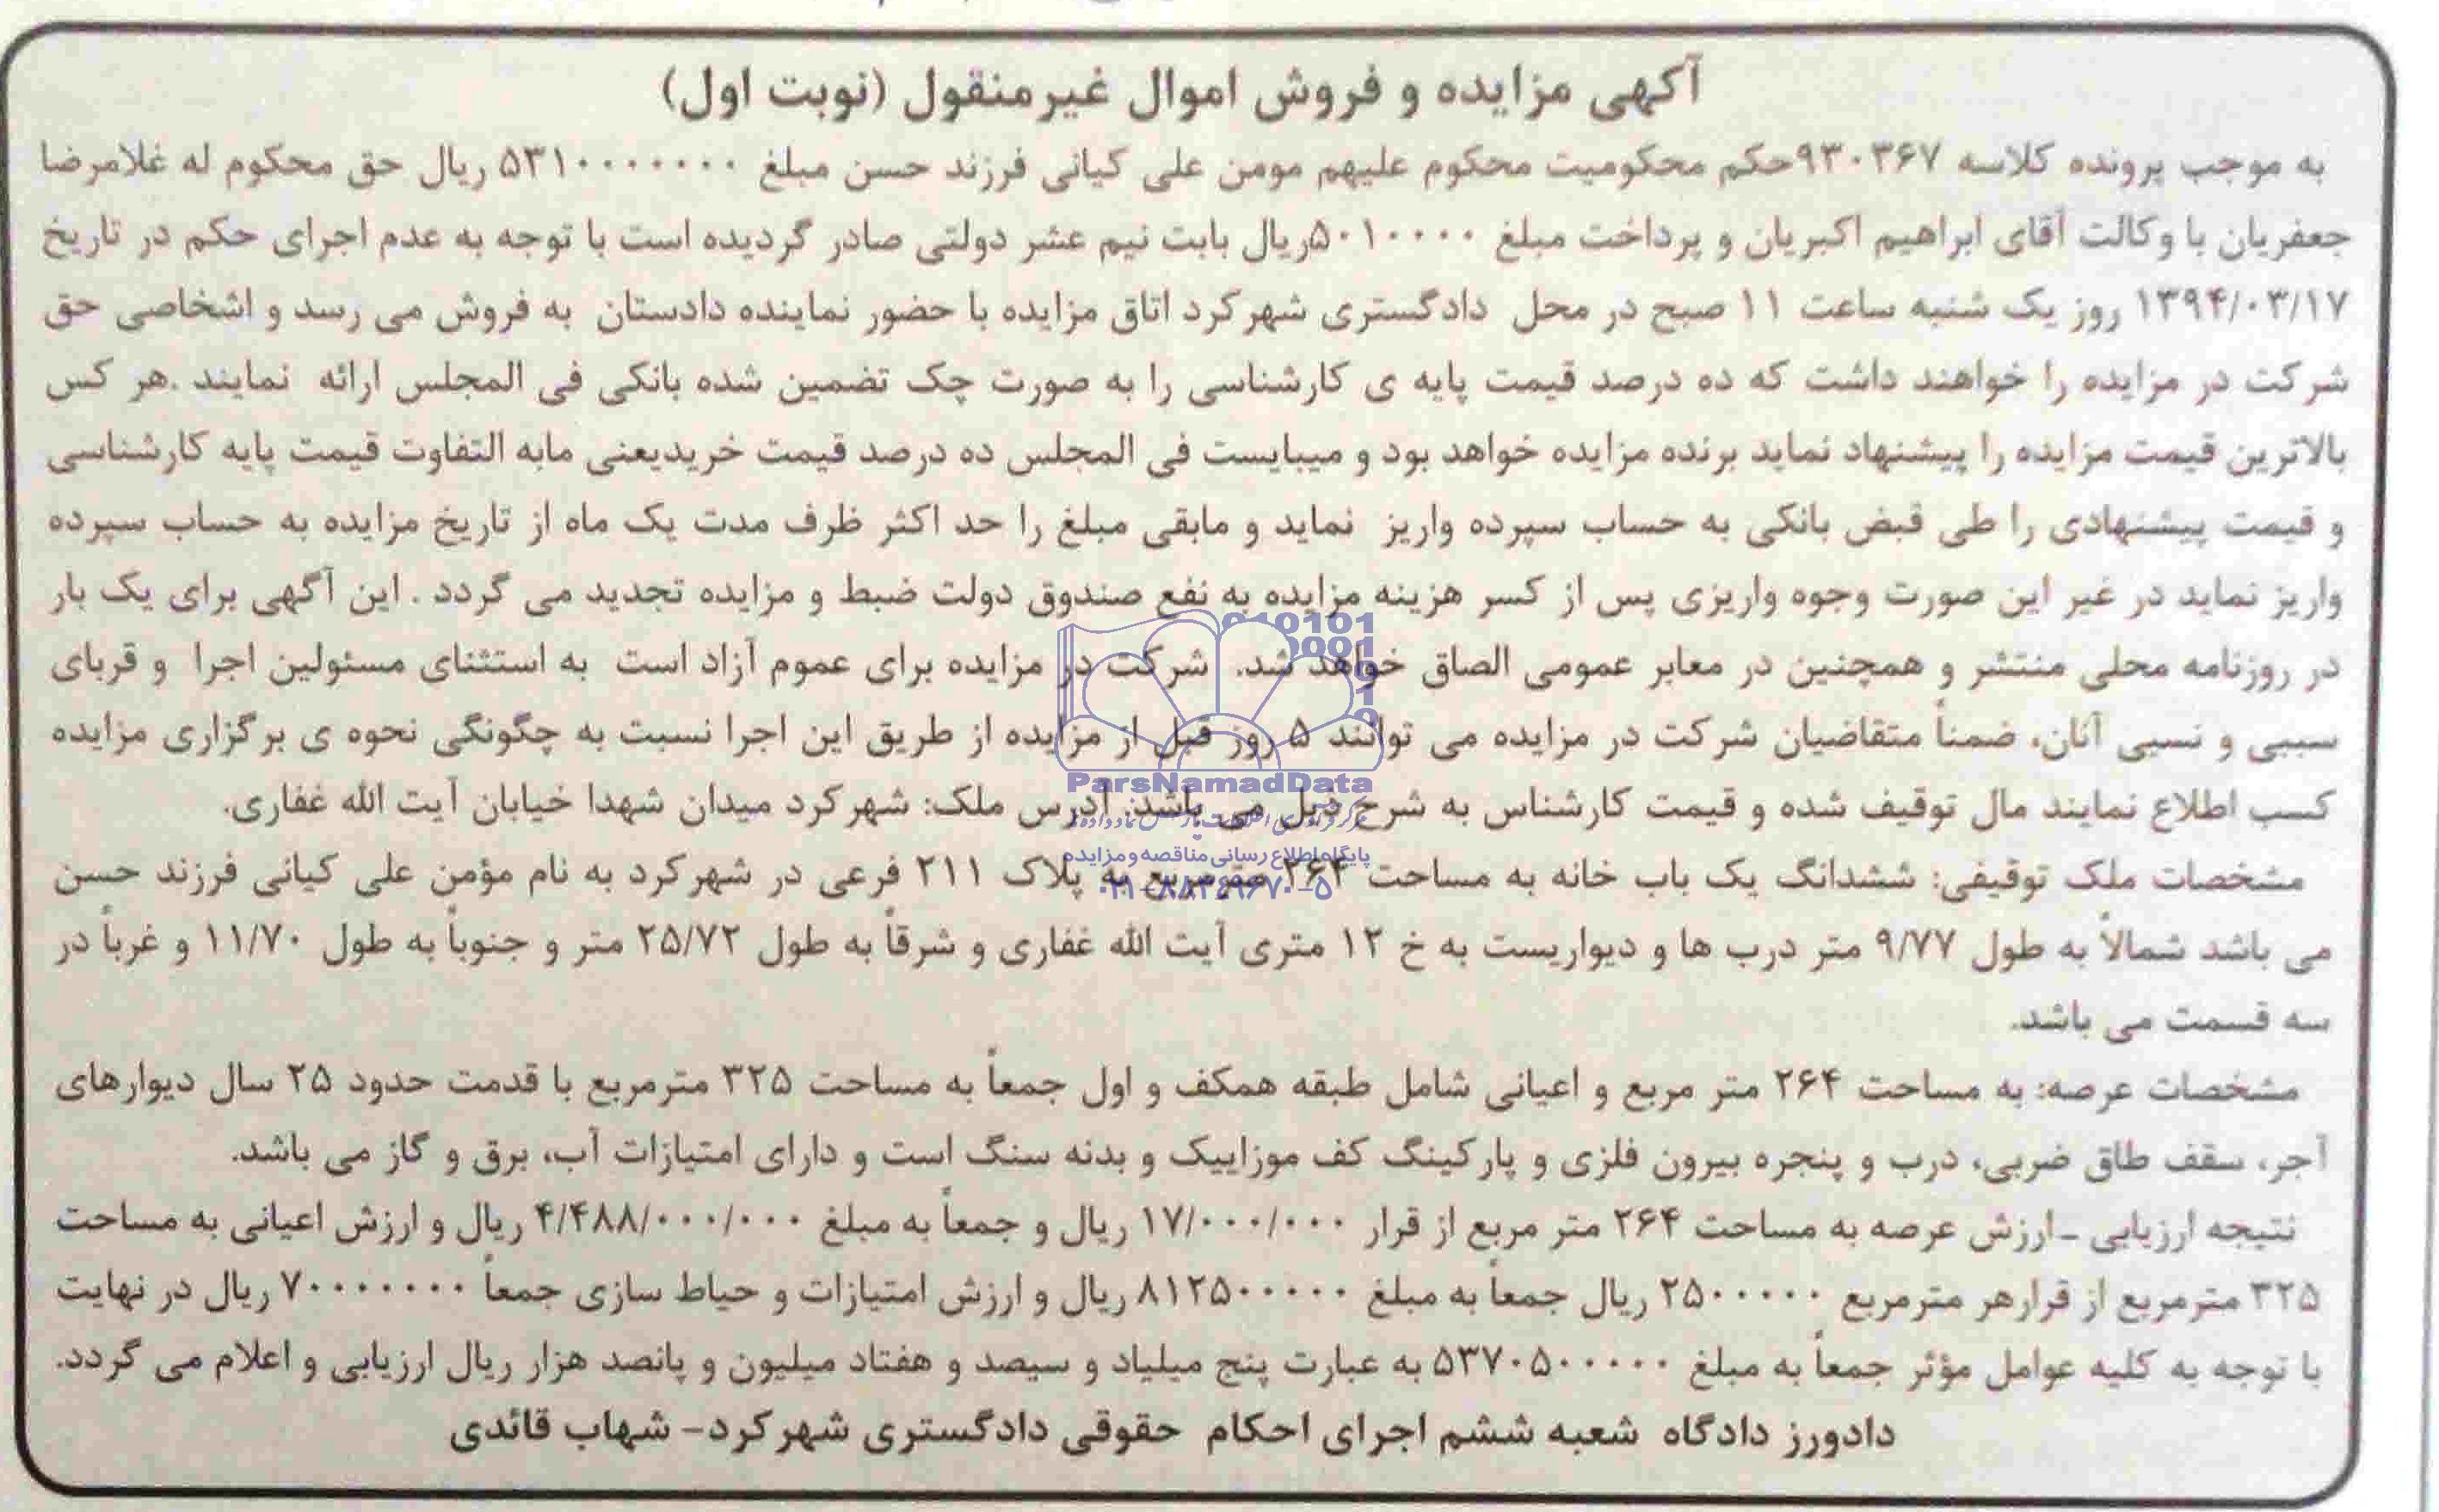 آگهی مزایده و فروش اموال غیرمنقول (نوبت اول)
به موجب پرونده کلاسه ۹۳۰۳۶۷حکم محکومیت محکوم علیهم مومن علی کیانی فرزند حسن مبلغ ۵۳۱۰۰۰۰۰۰۰ ریال حق محکوم له غلامرضا
جعفریان با وکالت آقای ابراهیم اکبریان و پرداخت مبلغ ۵۰۱۰۰۰۰ریال بابت نیم عشر دولتی صادر گردیده است با توجه به عدم اجرای حکم در تاریخ
۱۳۹۴/۰۳/۱۷ روز یک شنبه ساعت ۱۱ صبح در محل دادگستری شهرکرد اتاق مزایده با حضور نماینده دادستان به فروش می رسد و اشخاصی حق
شرکت در مزایده را خواهند داشت که ده درصد قیمت پایه ی کارشناسی را به صورت چک تضمین شده بانکی فی المجلس ارائه نمایند .هر کس
بالاترین قیمت مزایده را پیشنهاد نماید برنده مزایده خواهد بود و میبایست فی المجلس ده درصد قیمت خریدیعنی مابه التفاوت قیمت پایه کارشناسی
و قیمت پیشنهادی را طی قبض بانکی به حساب سپرده واریز نماید و مابقی مبلغ را حد اکثر ظرف مدت یک ماه از تاریخ مزایده به حساب سپرده
واریز نماید در غیر این صورت وجوه واریزی پس از کسر هزینه مزایده به نفع صندوق دولت ضبط و مزایده تجدید می گردد . این آگهی برای یک بار
در روزنامه محلی منتشر و همچنین در معابر عمومی الصاق خواهد شد. شرکت در مزایده برای عموم آزاد است به استثنای مسئولین اجرا و قربای
سببی و نسبی آنان، ضمناً متقاضیان شرکت در مزایده می توانند ۵ روز قبل از مزایده از طریق این اجرا نسبت به چگونگی نحوه ی برگزاری مزایده
کسب اطلاع نمایند مال توقیف شده و قیمت کارشناس به شرح ذیل می باشد. آدرس ملک: شهرکرد میدان شهدا خیابان آیت الله غفاری.
مشخصات ملک توقیفی: ششدانگ یک باب خانه به مساحت ۲۶۴ مترمربع به پلاک ۲۱۱ فرعی در شهرکرد به نام مؤمن علی کیانی فرزند حسن
می باشد شمالاً به طول ۹/۷۷ متر درب ها و دیواریست به خ ۱۲ متری آیت الله غفاری و شرقاً به طول ۲۵/۷۲ متر و جنوباً به طول ۱۱/۷۰ و غرباً در
سه قسمت می باشد.
مشخصات عرصه: به مساحت ۲۶۴ متر مربع و اعیانی شامل طبقه همکف و اول جمعاً به مساحت ۳۲۵ مترمربع با قدمت حدود ۲۵ سال دیوارهای
آجر، سقف طاق ضربی، درب و پنجره بیرون فلزی و پارکینگ کف موزاییک و بدنه سنگ است و دارای امتیازات آب، برق و گاز می باشد.
نتیجه ارزیابی -ارزش عرصه به مساحت ۲۶۴ متر مربع از قرار ۱۷/۰۰۰/۰۰۰ ریال و جمعاً به مبلغ ۴/۴۸۸/۰۰۰/۰۰۰ ریال و ارزش اعیانی به مساحت
۳۲۵ مترمربع از قرارهر مترمربع ۲۵۰۰۰۰۰ ریال جمعاً به مبلغ ۸۱۲۵۰۰۰۰۰ ریال و ارزش امتیازات و حیاط سازی جمعاً ۷۰۰۰۰۰۰۰ ریال در نهایت
با توجه به کلیه عوامل مؤثر جمعاً به مبلغ ۵۳۷۰۵۰۰۰۰۰ به عبارت پنج میلیاد و سیصد و هفتاد میلیون و پانصد هزار ریال ارزیابی و اعلام می گردد.
دادورز دادگاه شعبه ششم اجرای احکام حقوقی دادگستری شهرکرد- شهاب قائدی
ParsNamadData
پایگاه اطلاع رسانی مناقصه و مزایده
۰۲۱-۸۸۳۴۹۶۷۰-۵